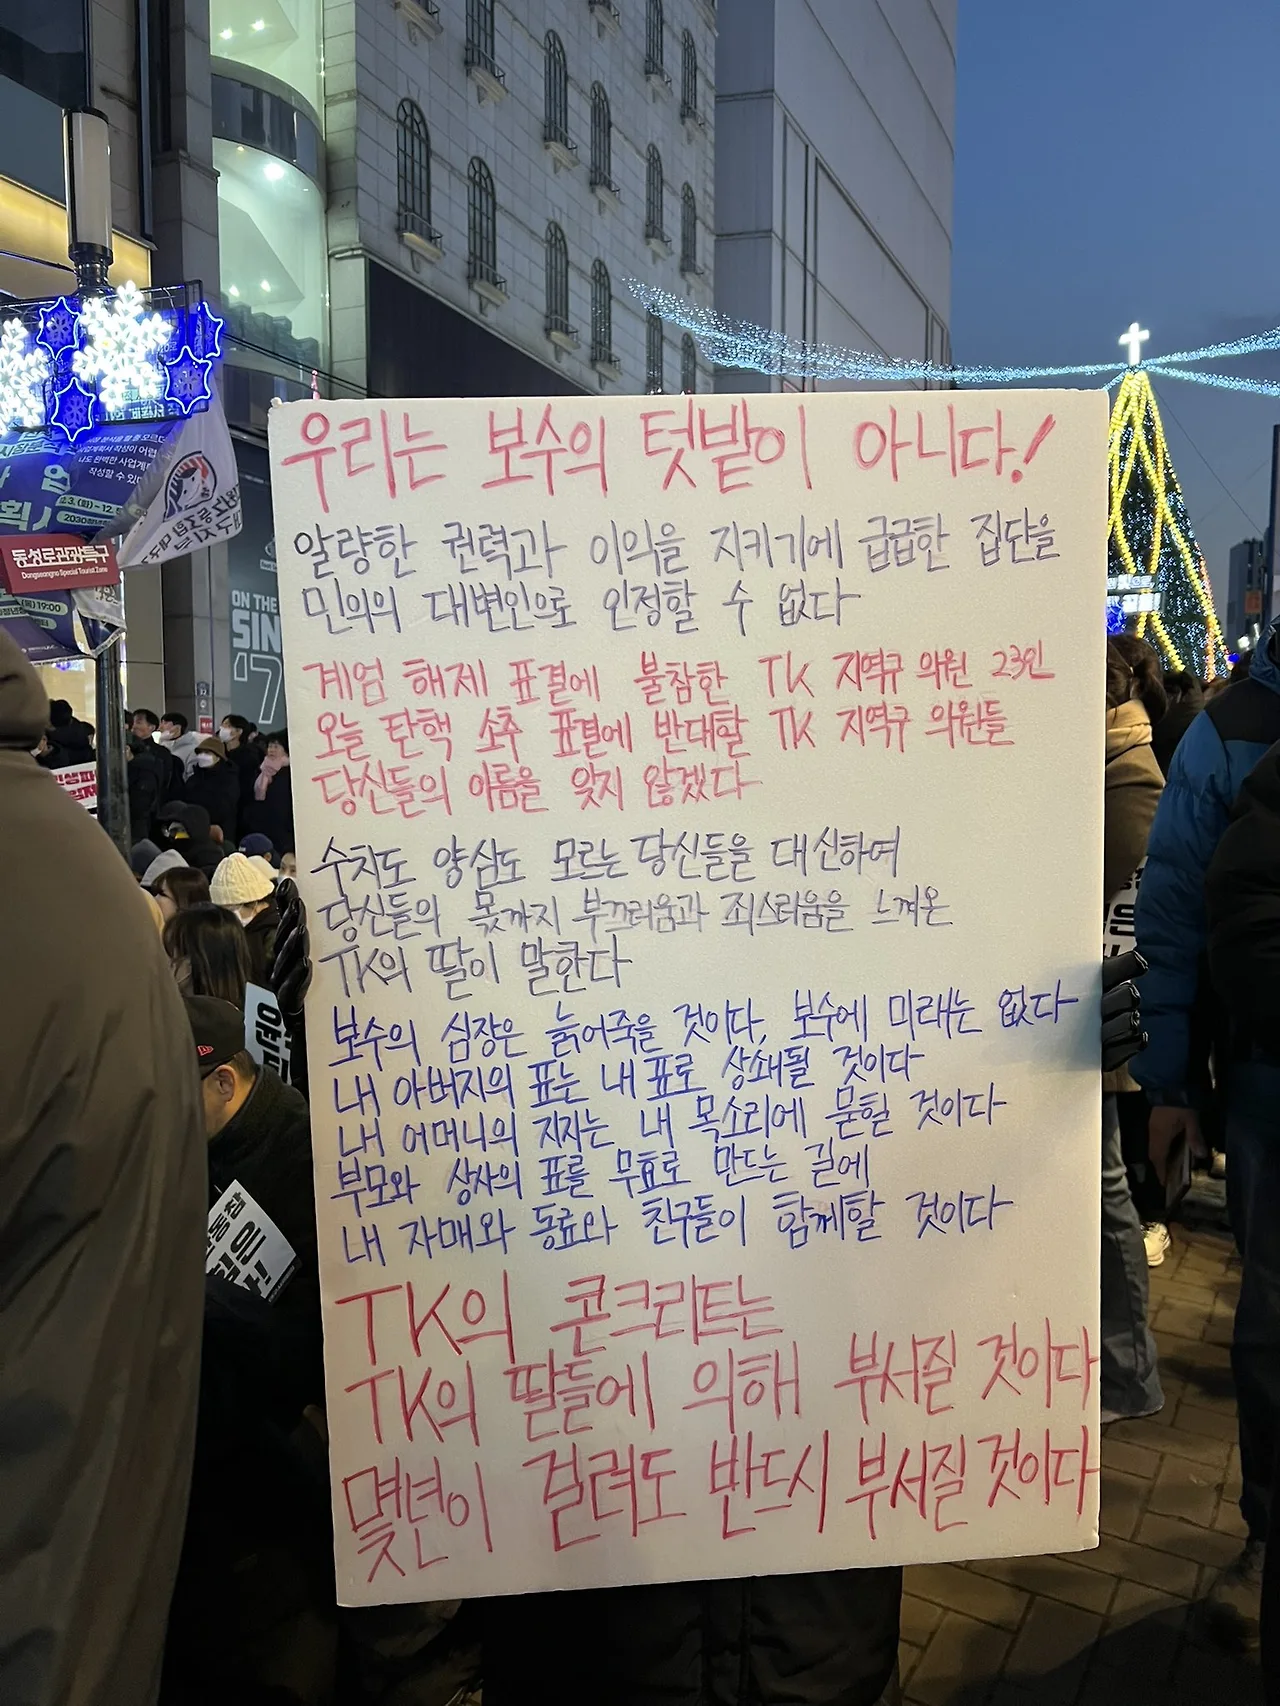 우리는 보수의 텃밭이 아니다!
알량한 권력과 이익을 지키기에 급급한 집단을
민의의 대변인으로 인정할 수 없다
계엄 해제 표결에 불참한 TK 지역규 의원 23인
오늘 탄핵 소추 표결에 반대할 TK 지역규 의원들
당신들의 이름을 잊지 않겠다
수치도 양심도 모르는 당신들을 대신하여
당신들의 몫까지 부끄러움과 죄스러움을 느껴온
TK의 딸이 말한다
보수의 심장은 늙어죽을 것이다, 보수에 미래는 없다
내 아버지의 표는 내 표로 상쇄될 것이다
내 어머니의 지지는 내 목소리에 묻힐 것이다
부모와 상사의 표를 무효로 만드는 길에
내 자매와 동료와 친구들이 함께할 것이다
TK의 콘크리트는
TK의 딸들에 의해 부서질 것이다
몇년이 걸려도 반드시 부서질 것이다
동성로관광특구
Dongseongno Special Tourist Zone
19:00
ON THE
SIN
'7